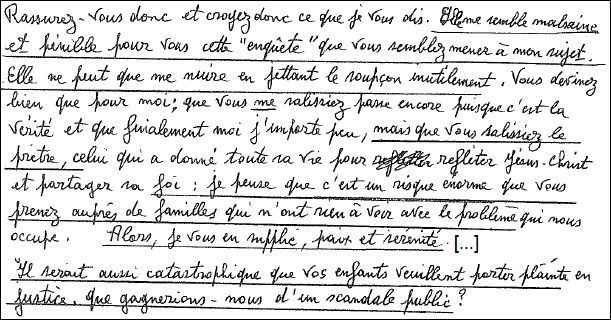 Rassurez-vous donc et croyez donc ce que je vous dis. Elle me semble malsaine
et pénible pour vous cette "enquête" que vous semblez mener à mon sujet.
Elle ne peut que me nuire en jettant le soupçon inutilement. Vous devinez
bien que pour moi; que vous me salissiez passe encore puisque c'est la
vérité et que finalement moi j'importe peu, mais que vous salissiez le
prêtre, celui qui a donné toute sa vie pour refléter Jésus-Christ
et partager sa foi : je pense que c'est un risque énorme que vous
prenez auprès de familles qui n'ont rien à voir avec le problème qui nous
occupe. Alors, je vous en supplie, paix et sérénité. [...]
Il serait aussi catastrophique que vos enfants veuillent porter plainte en
justice. que gagnerions-nous d'un scandale public ?